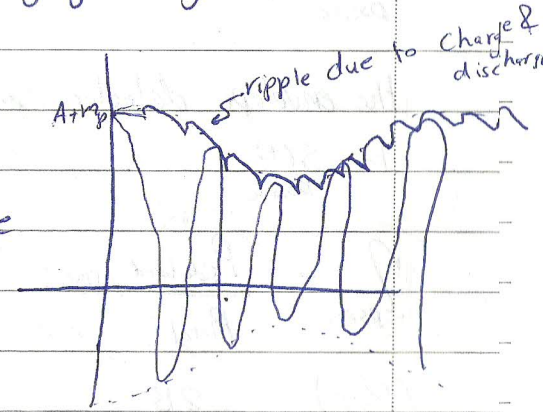 ripple due to charge &
discharge
A+mp